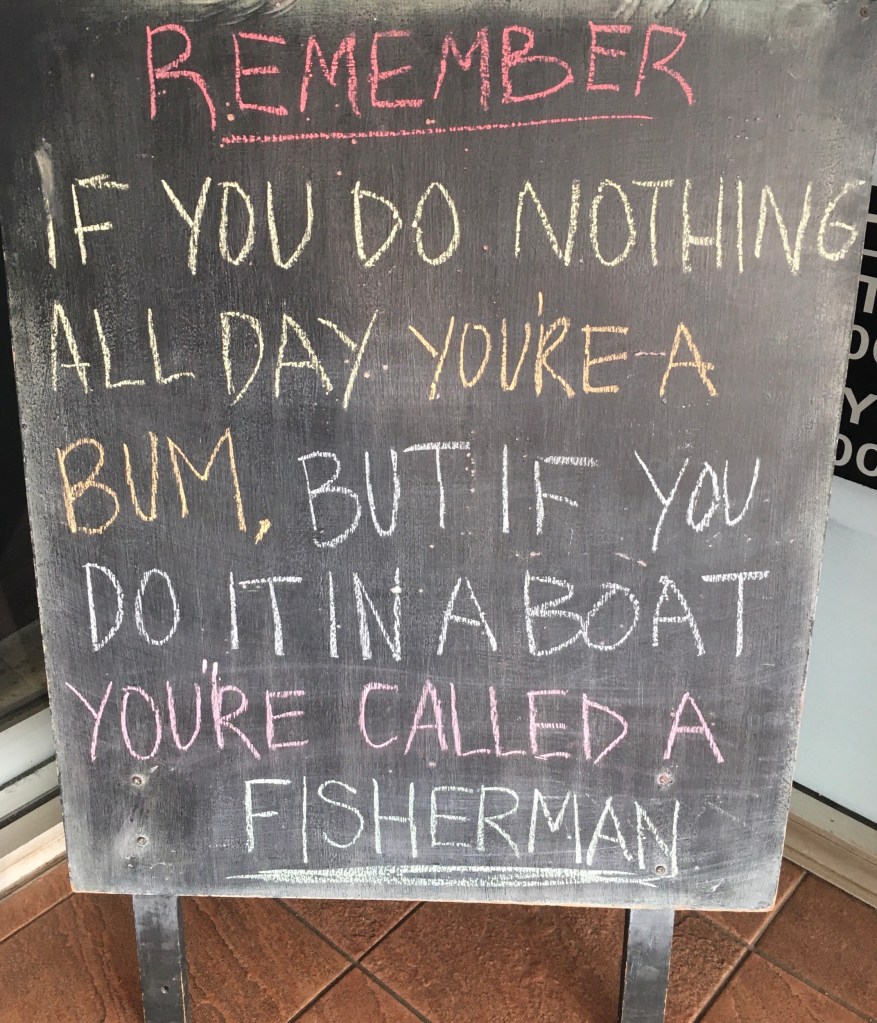 REMEMBER
IF YOU DO NOTHING
ALL DAY YOU'RE A
BUM, BUT IF YOU
DO IT IN A BOAT
YOU'RE CALLED A
FISHERMAN